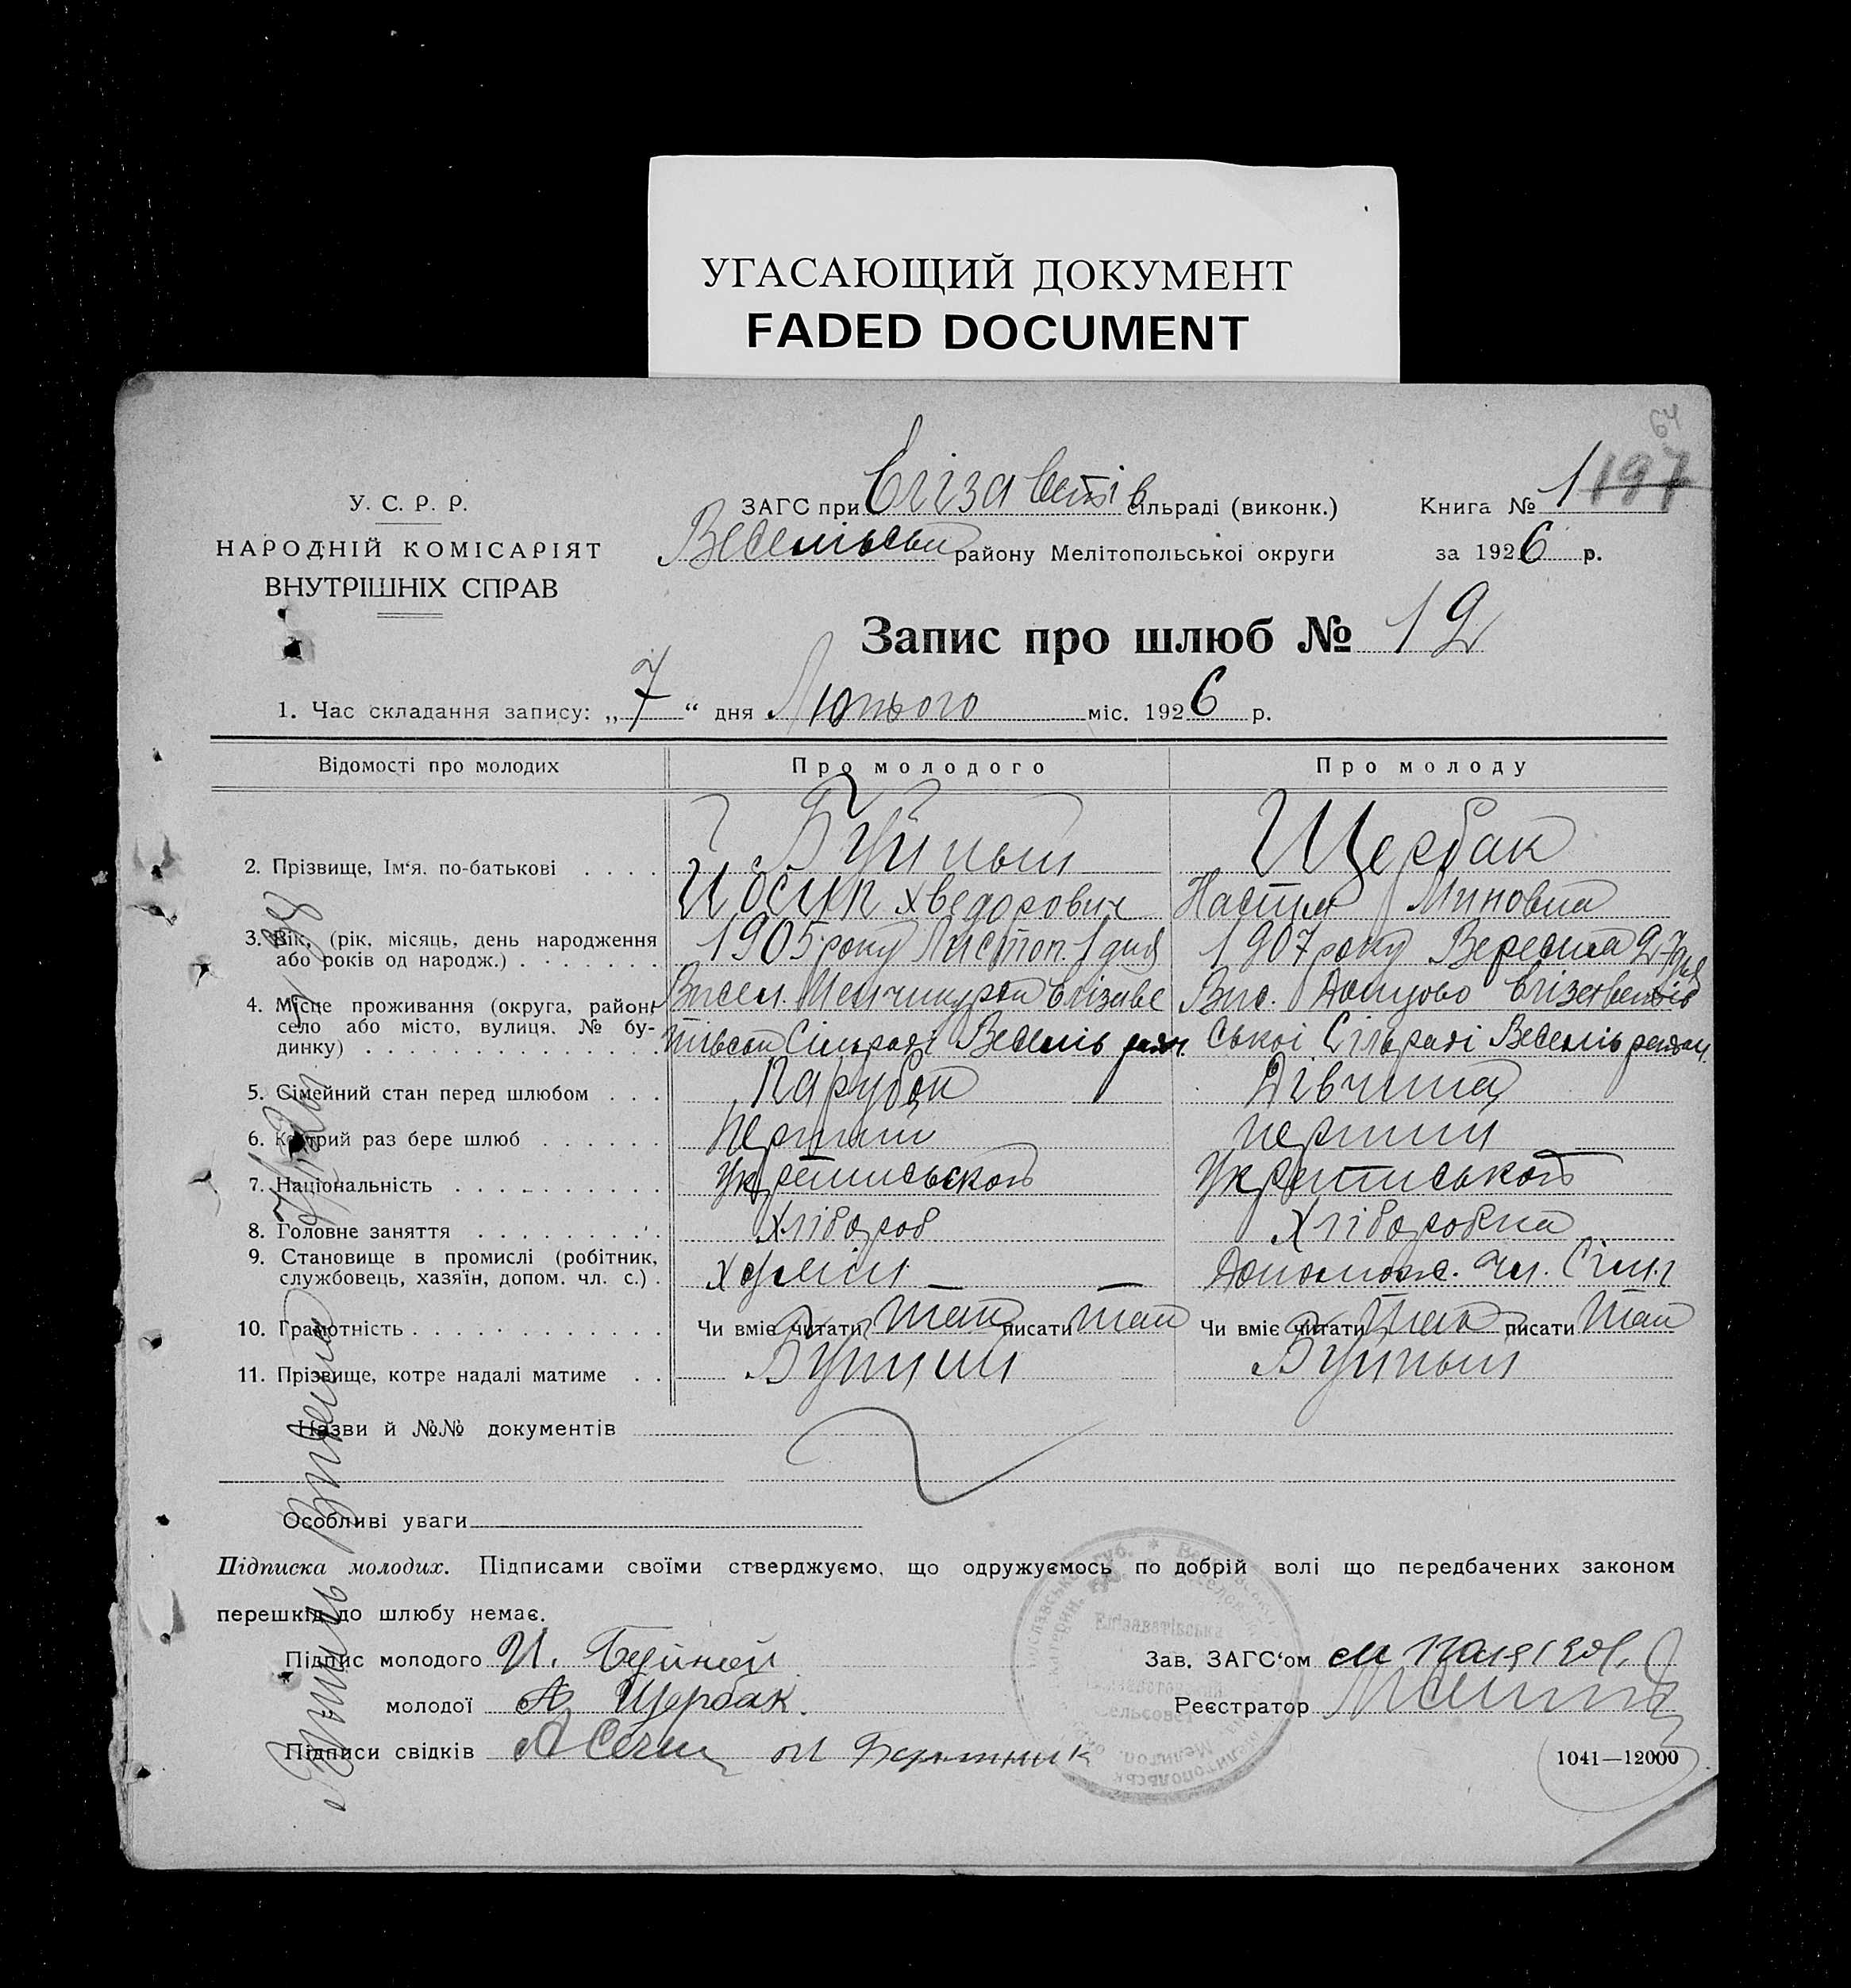 УГАСАЮЩИЙ ДОКУМЕНТ
FADED DOCUMENT
64
У. С. Р. Р.
НАРОДНІЙ КОМІСАРІЯТ
ВНУТРІШНІХ СПРАВ
ЗАГС при Єлізаветів сільраді (виконк.)
районy Мелітопольської округи
Книга № 1 197
за 1926 р.
Запис про шлюб № 12
1. Час складання запису: „7“ дня Лютого міс. 1926 р.
Відомості про молодих Про молодого Про молоду
2. Прізвище, Ім‘я. по-батькові . . . . Буйный Щербак
Йосип Хведорович Настя Миновна
3. Вік, (рік, місяць, день народження
або років од народж.) . . . . . . . 1905 року Листоп. 1 дня 1907 року Вересня 27 дня
4. Місце проживання (округа, район,
село або місто, вулиця, № бу-
динку) . . . . . . . . . . . . . . Сільраді Веселів район. ської Сільраді Веселів район.
5. Сімейний стан перед шлюбом . . . Парубок Дівчина
6. Котрий раз бере шлюб . . . . . . Перший перший
7. Національність . . . . . . . . . .
8. Головне заняття . . . . . . . . . Хлібороб Хліборобка
9. Становище в промислі (робітник,
службовець, хазяїн, допом. чл. с.) . Допомож. чл. Сім.
10. Грамотність . . . . . . . . . . . . Чи вміє читати так писати так Чи вміє читати так писати так
11. Прізвище, котре надалі матиме . . Буйный Буйный
Назви й №№ документів
Особливі уваги
Підписка молодих. Підписами своїми стверджуємо, що одружуємось по добрій волі що передбачених законом
перешкід до шлюбу немає.
Підпис молодого И. Буйной
Зав. ЗАГС‘ом
„ молодої А Щербак.
Реєстратор
Підписи свідків
1041—12000